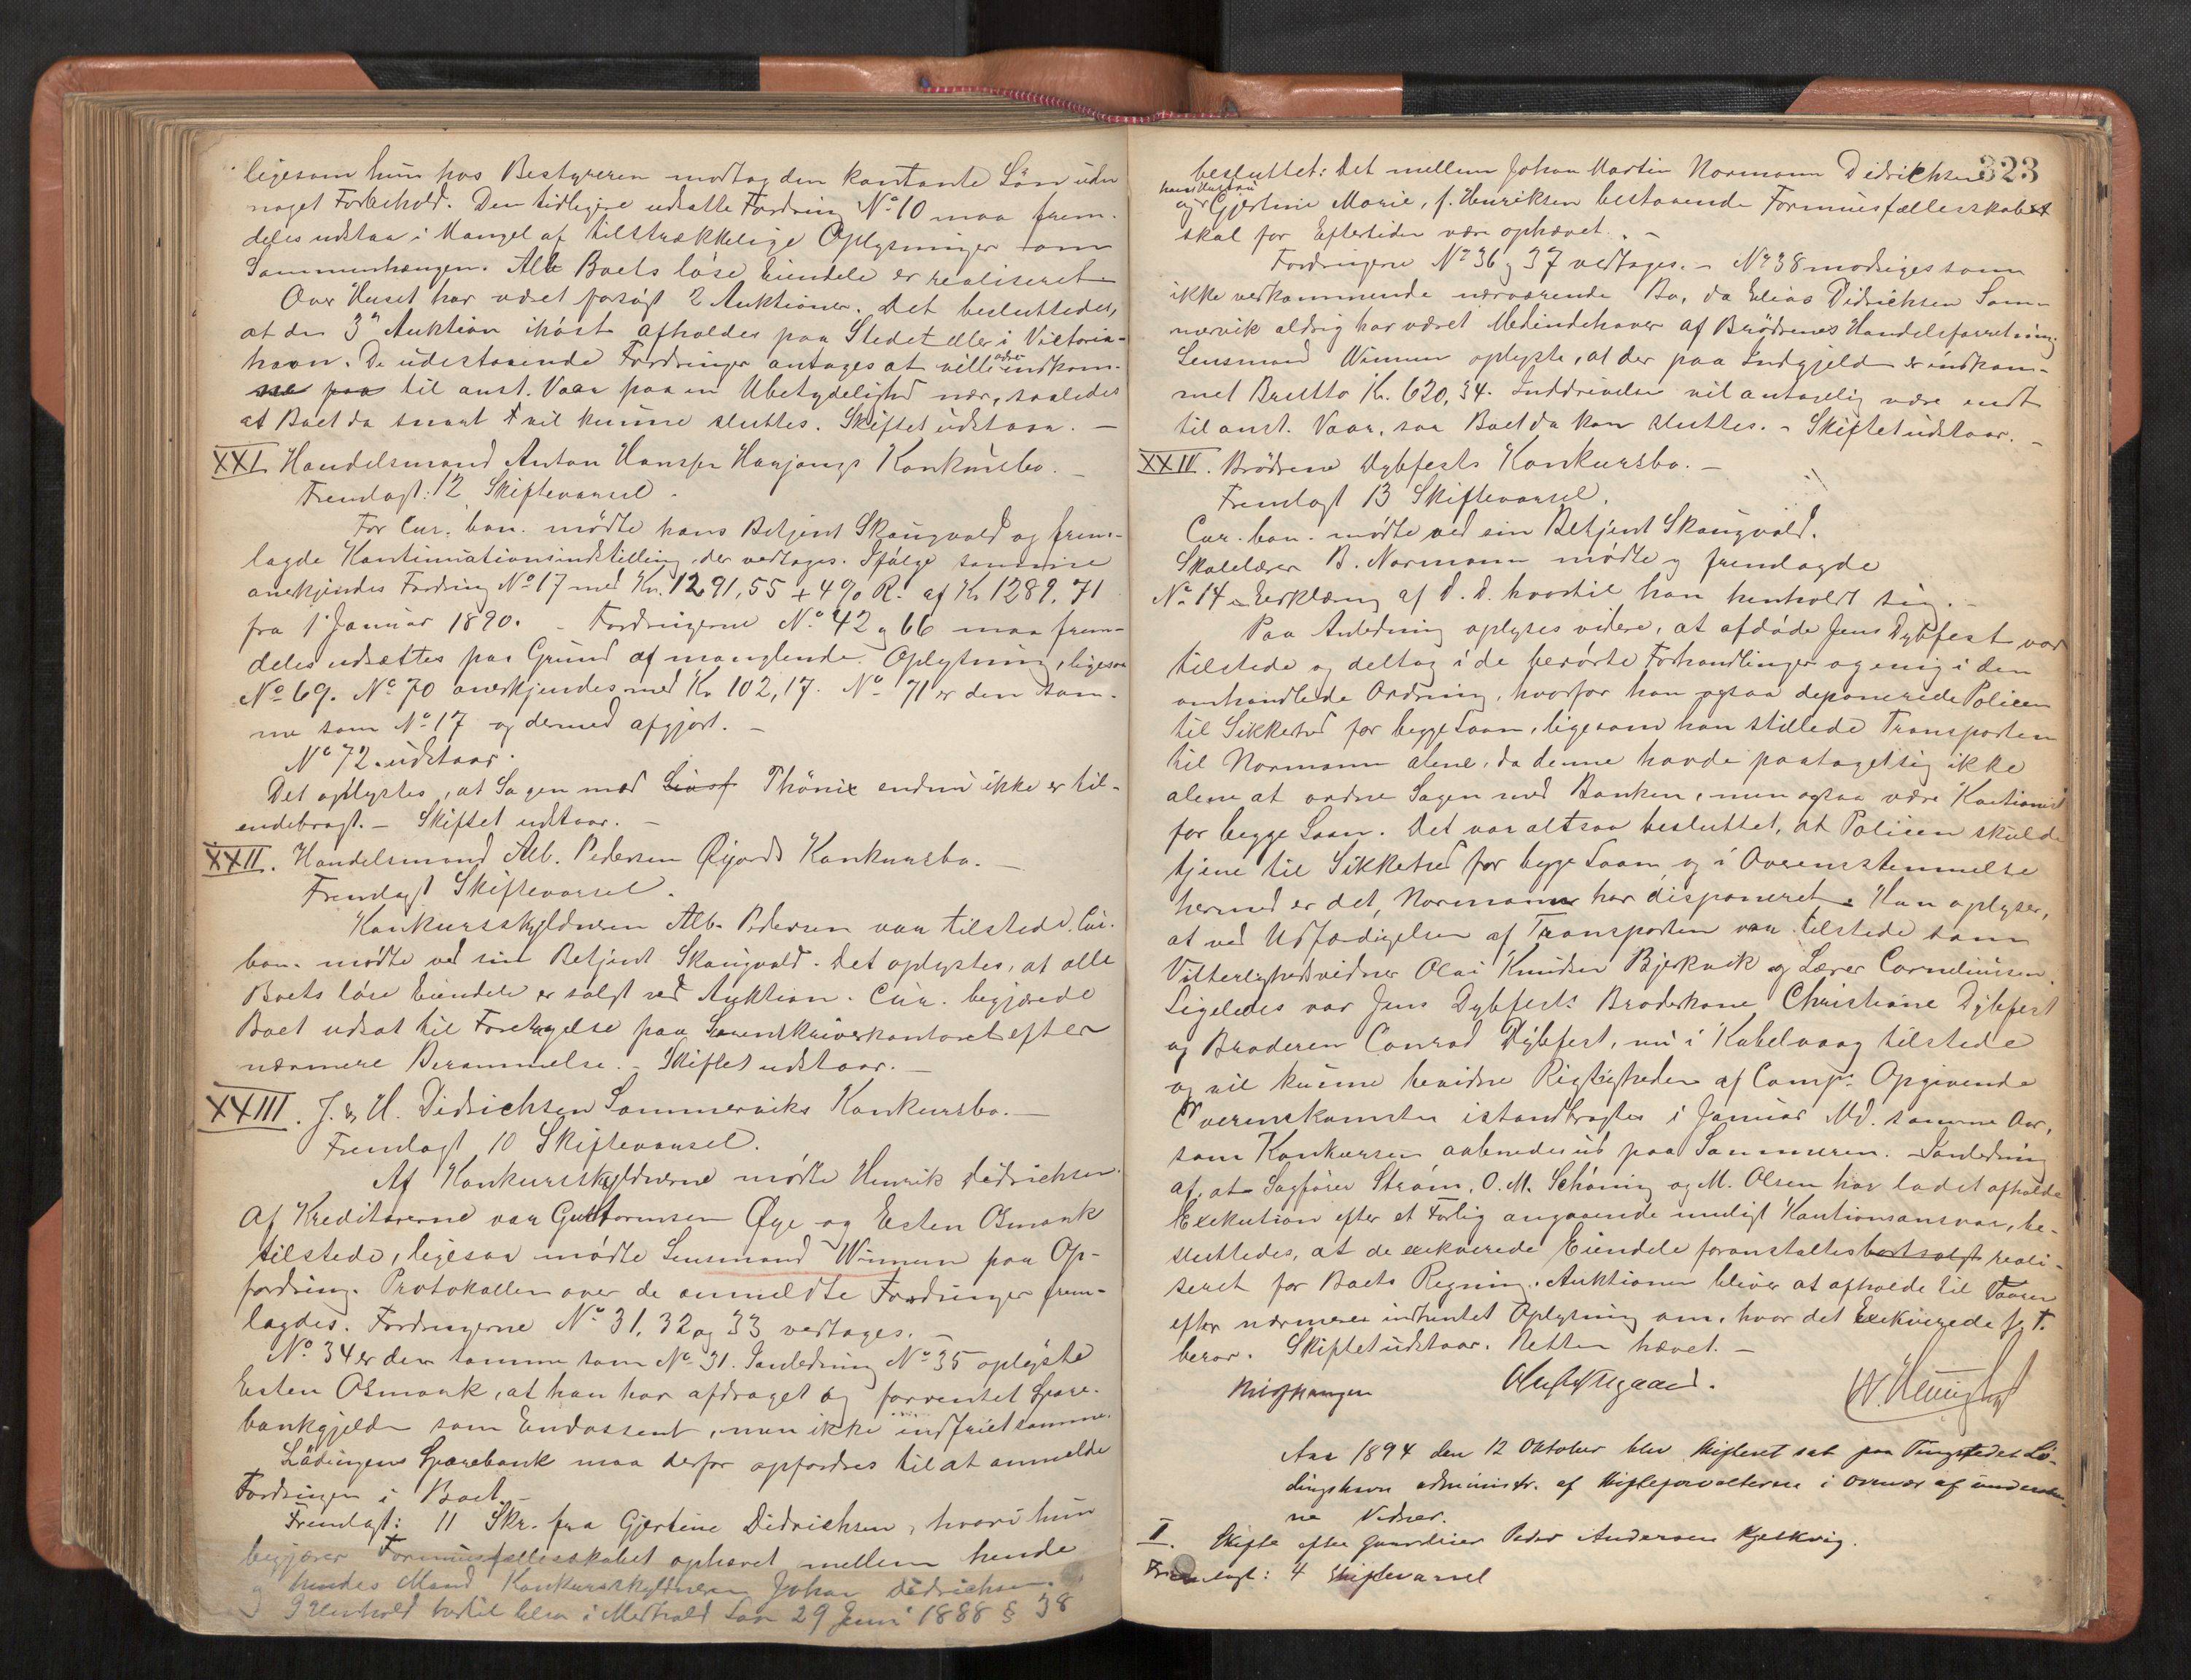 ligesom hun hos Bestyreren modtog den kontante Løn uden
noget Forbehold. Den tidligere udsatte Fordring No 10 maa frem-
deles udstaa i Mangel af tilstrækkelige Oplysninger om
Sammenhængen. Alle Boets løse Eiendele er realiseret
Over Huset har været forsøgt 2 Auktioner. Det besluttedes,
at den 3die Auktion ihøst afholdes paa Stedet eller i Victoria-
havn. De udestaaende Fordringer antages at ville indkom-
me paa til anst. Vaar paa en Ubetydelighed nær, saaledes
at Boet da snart vil kunne sluttes. Skiftet udstaar. —
XXI. Handelsmand Anton Hansen Harjangs Konkursbo. —
Fremlagt: 12 Skiftevarsel.
For Cur. bon. mødte hans Betjent Skaugvold og frem-
lagde Kontinuationsindstilling, der vedtages. Ifølge samme
anerkjendes Fordring No 17 med Kr. 1291,55 + 4% R. af Kr 1289,71
fra 1 Januar 1890. – Fordringerne No 42 og 66 maa frem-
deles udsættes paa Grund af manglende Oplysning, ligesom
No 69. No 70 anerkjendes med Kr 102,17. No 71 er den sam-
me som No 17 og dermed afgjort. —
No 72 udstaar.
Det oplystes, at Sagen mod Phønix endnu ikke er til-
endebragt. – Skiftet udstaar. —
XXII. Handelsmand Alb. Pedersen Øijords Konkursbo. —
Fremlagt Skiftevarsel.
Konkursskyldneren Alb. Pedersen var tilstede. Cur.
bon. mødte ved sin Betjent Skaugvold. Det oplystes, at alle
Boets løse Eiendele er solgt ved Auktion. Cur. begjærede
Boet udsat til Foretagelse paa Sorenskriverkontoret efter
nærmere Berammelse. – Skiftet udstaar. —
XXIII. J. & H. Didrichsen Sommerviks Konkursbo. —
Fremlagt 10 Skiftevarsel.
Af Konkursskyldnerne mødte Henrik Didrichsen.
Af Kreditorerne var Guttormsen Øye og Esten Osmark
tilstede, ligesaa mødte Lensmand Wimmer paa Op-
fordring. Protokollen over de anmeldte Fordringer frem-
lagdes. Fordringerne No 31, 32 og 33 vedtages. —
No 34 er den samme som No 31. I anledning No 35 oplyste
Esten Osmark, at han har afdraget og forrentet Spare-
bankgjelden som Endossent, men ikke indfriet samme.
Lødingens Sparebank maa derfor opfordres til at anmelde
Fordringen i Boet. –
Fremlagt: 11 Skr. fra Gjertine Didrichsen, hvori hun
begjærer Formuesfællesskabet ophævet mellem hende
og hendes Mand Konkursskyldneren Johan Didrichsen.
I Henhold hertil blev i Medhold Lov 29 Juni 1888 § 38
323
besluttet: Det mellem Johan Martin Normann Didrichsen
hans Hustru
og Gjertine Marie, f. Henriksen bestaaende Formuesfællesskabet
skal for Eftertiden være ophævet. –
Fordringerne No 36 og 37 vedtages. – No 38 modsiges som
ikke vedkommende nærværende Bo, da Elias Didrichsen Som-
mervik aldrig har været Medindehaver af Brødrenes Handelsforretning.
Lensmand Wimmer oplyste, at der paa Indgjelden er indkom-
met Brutto Kr. 620,34. Inddrivelsen vil antagelig være endt
til anst. Vaar, saa Boet da kan sluttes. – Skiftet udstaar. –
XXIV. Brødrene Dybfests Konkursbo. –
Fremlagt 13 Skiftevarsel.
Cur. bon. mødte ved sin Betjent Skaugvold.
Skolelærer B. Normann mødte og fremlagde
No 14 Erklæring af D. D. hvortil han henholdt sig. –
Paa Anledning oplyses videre, at afdøde Jens Dybfest var
tilstede og deltog i de berørte Forhandlinger og enig i den
omhandlede Ordning, hvorfor han ogsaa deponerede Policen
til Sikkerhed for begge Laan, ligesom han stillede Transporten
til Normann alene, da denne havde paataget sig ikke
alene at ordne Sagen med Banken, men ogsaa være Kautionist
for begge Laan. Det var altsaa besluttet, at Policen skulde
tjene til Sikkerhed for begge Laan og i Overensstemmelse
hermed er det, Normann har disponeret. Han oplyser,
at ved Udfærdigelsen af Transporten var tilstede som
Vitterlighedsvidner Olai Knudsen Bjerkvik og Lærer Corneliussen.
Ligeledes var Jens Dybfests Broderkone Christiane Dybfest
og Broderen Conrad Dybfest, nu i Kabelvaag tilstede
og vil kunne bevidne Rigtigheden af Comp. Opgivende
Overenskomsten istandbragtes i Januar Md. samme Aar,
som Konkursen aabnedes ud paa Sommeren. – I anledning
af, at Sagfører Strøm, O. M. Schøning og M. Olsen har ladet afholde
Exekution efter et Forlig angaaende muligt Kautionsansvar, be-
sluttedes, at de exekverede Eiendele foranstaltes bortsolgt reali-
seret for Boets Regning. Auktionen bliver at afholde til Vaaren
efter nærmere indhentet Oplysning om, hvor det Exekverede f. T.
beror. Skiftet udstaar. Retten hævet. —
Aar 1894 den 12 Oktober blev Skifteret sat paa Tingstedet Lø-
dingshavn administr. af Skifteforvalteren i Overvær af underskr-
ne Vidner.
I. Skifte efter Gaardeier Peder Andersen Kjelkvig.
Fremlagt: 4 Skiftevarsel